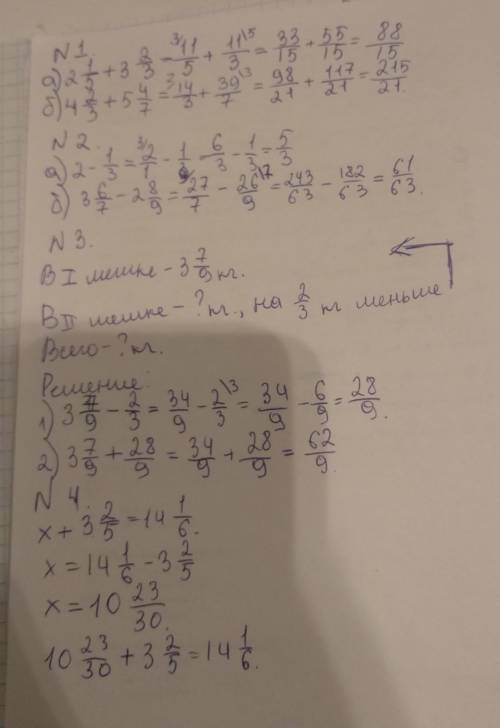 N 1.
а) 2 1/5 + 3 2/3 = ³⁾11/5 + 11/3\5 = 33/15 + 55/15 = 88/15
б) 4 2/3 + 5 4/7 = ³⁾14/3 + 39/7\3 = 98/21 + 117/21 = 215/21.
N 2.
а) 2 - 1/3 = ³⁾2/1 - 1/3 = 6/3 - 1/3 = 5/3
б) 3 6/7 - 2 8/9 = 27/7 - 26/9\7 = 243/63 - 182/63 = 61/63.
N 3.
В I мешке - 3 7/9 кг.
В II мешке - ? кг., на 2/3 кг меньше
Всего - ? кг.
Решение:
1) 3 7/9 - 2/3 = 34/9 - 2/3\3 = 34/9 - 6/9 = 28/9.
2) 3 7/9 + 28/9 = 34/9 + 28/9 = 62/9.
N 4.
х + 3 2/5 = 14 1/6.
х = 14 1/6 - 3 2/5
х = 10 23/30.
10 23/30 + 3 2/5 = 14 1/6.